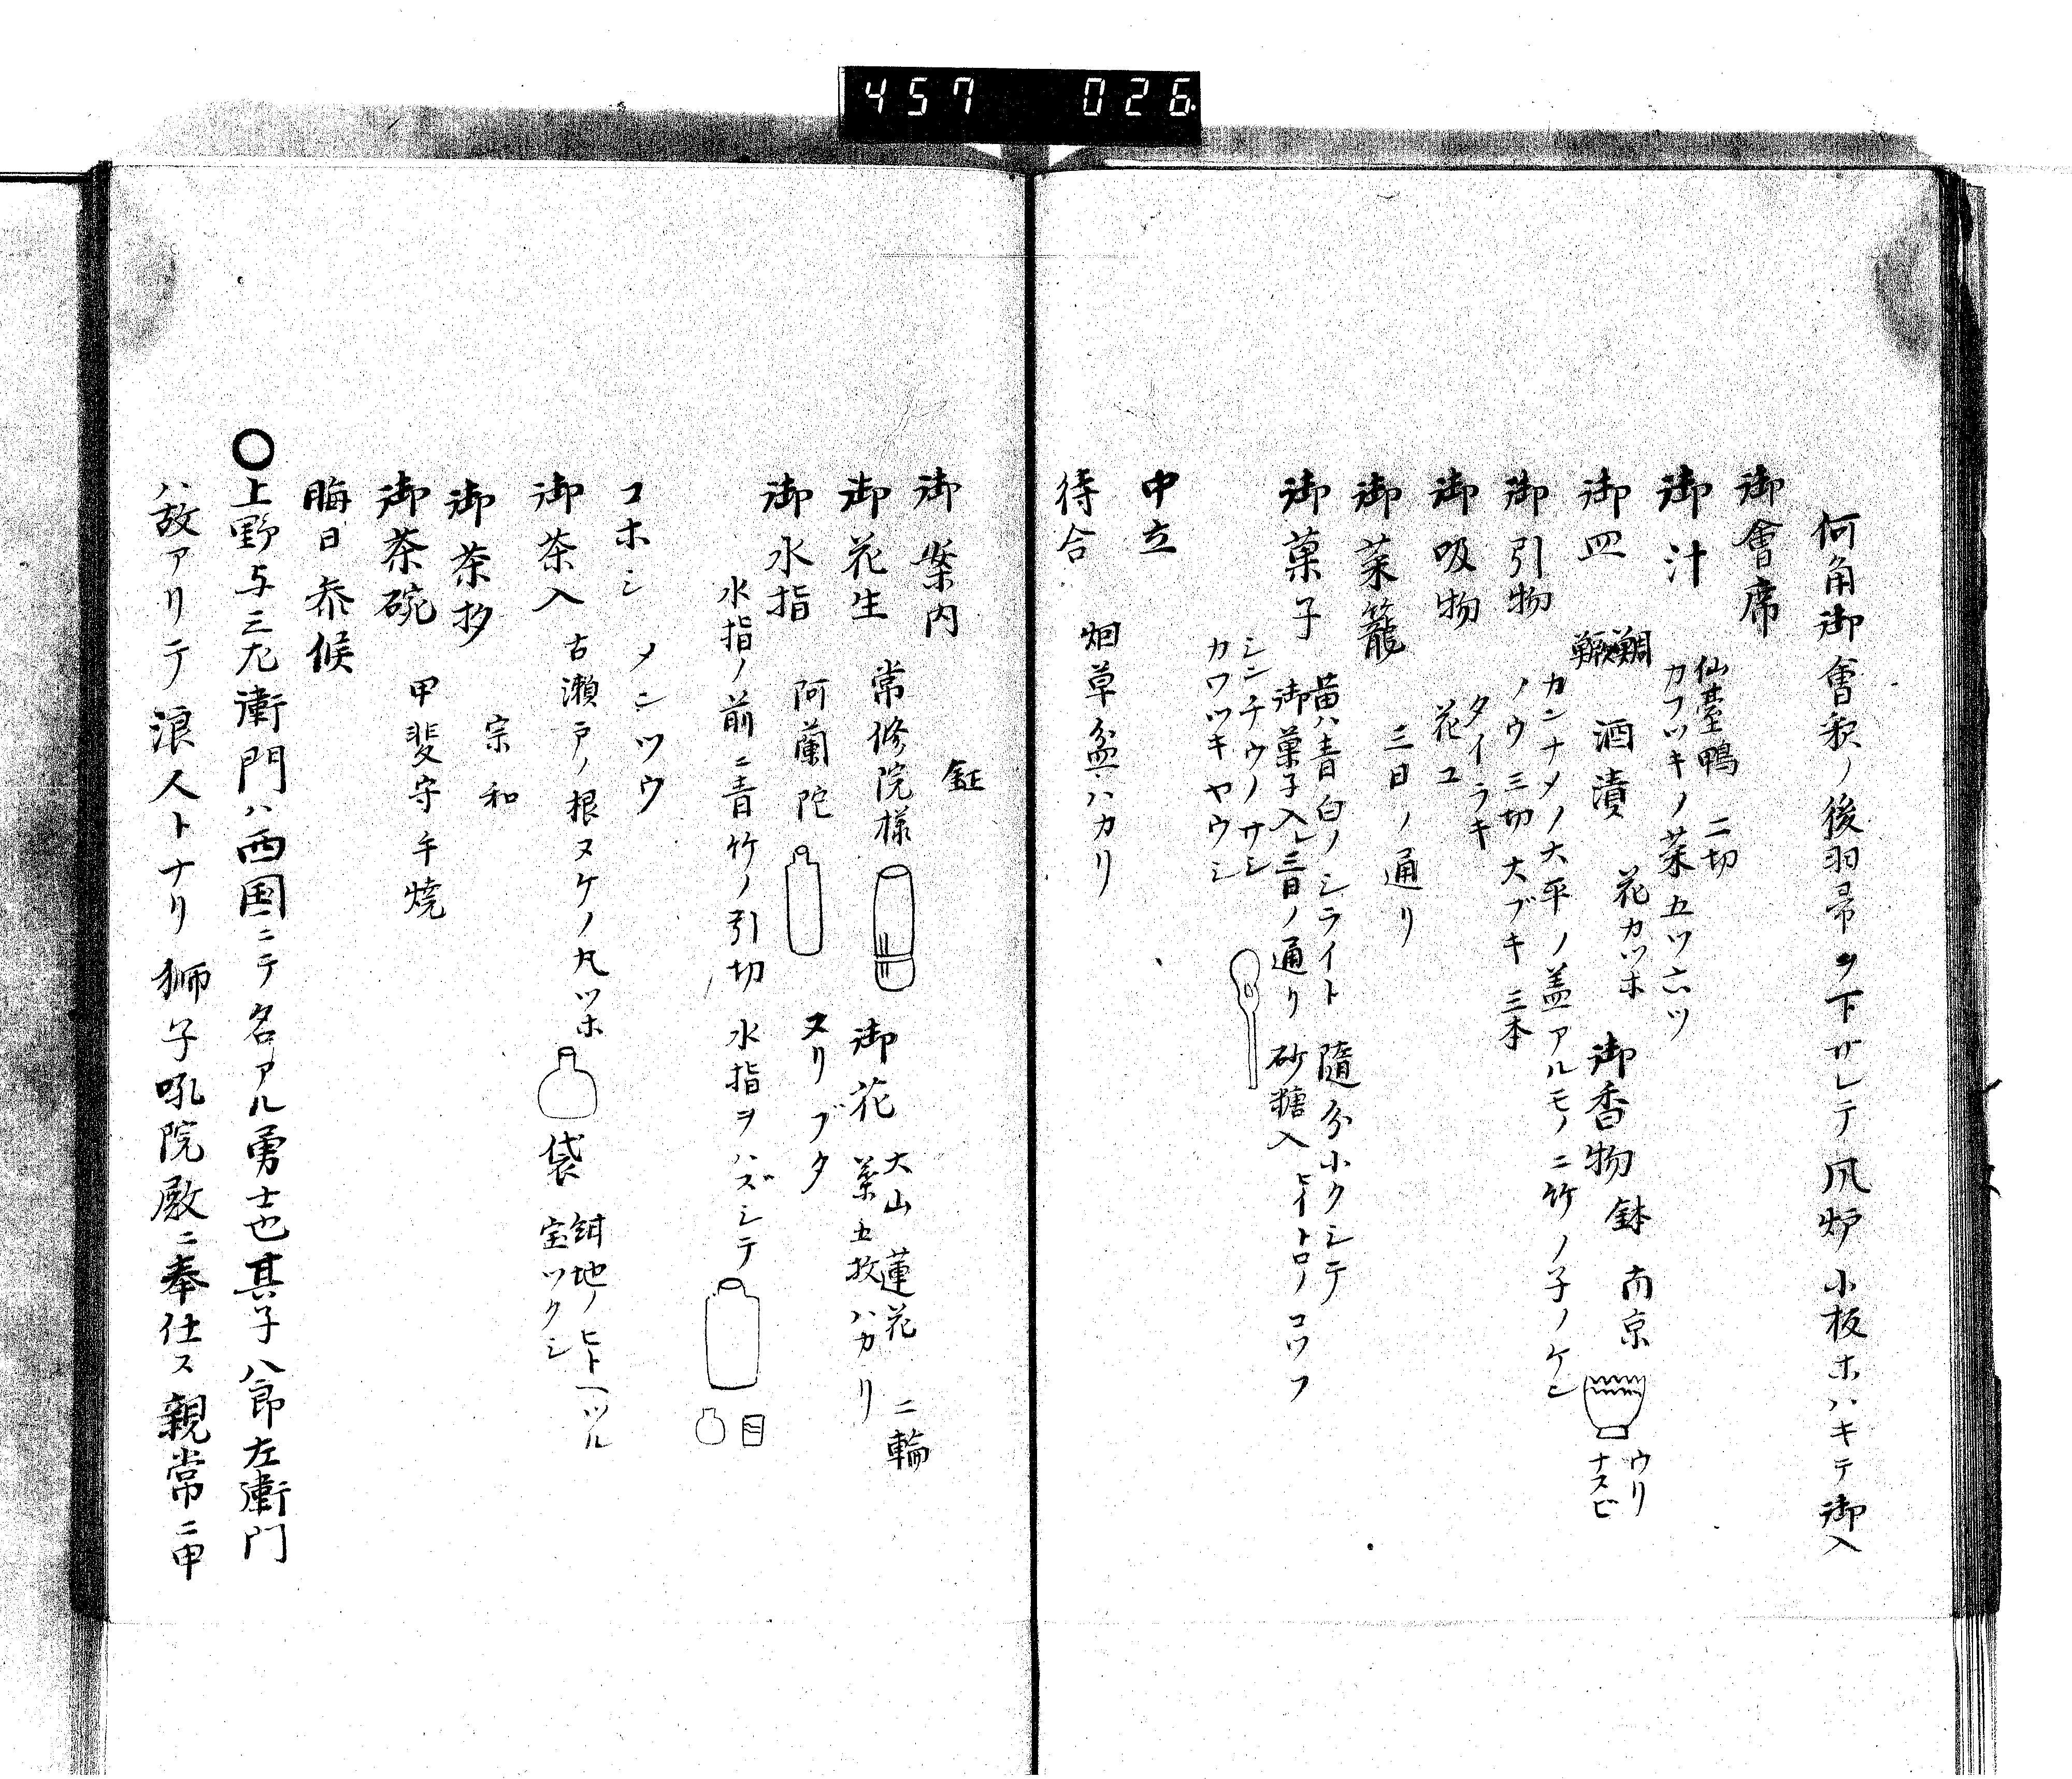 457 026
何角御會釈ノ後羽帚ヲ下サレテ風炉小板ホハキテ御入
御會席
御汁 仙臺鴨 二切
カフツキノ菜五ツ六ツ
御皿 鯛 酒漬 花カツホ 御香物 鉢 南京 ウリ
ナスビ
御引物 カンナメノ大平ノ蓋アルモノニ竹ノ子ノケン
ノウ三切大ブキ三本
御吸物 タイラキ
花ユ
御菓籠 三日ノ通リ
御菓子 黄ハ青白ノシライト 隨分小クシテ
御菓子入レ三日ノ通リ 砂糖入 ヒイトロノコツフ
シンチウノサシ
カワツキヤウシ
中立
待合 烟草盆ハカリ
御案内 鉦
御花生 常修院様 御花 大山蓮花 二輪
葉五枚ハカリ
御水指 阿蘭陀 ヌリブタ
水指ノ前ニ青竹ノ引切 水指ヲハズシテ
コホシ メンツウ
御茶入 古瀬戸ノ根ヌケノ丸ツホ 袋 紺地ノヒトヘツル
宝ツクシ
御茶杓 宗和
御茶碗 甲斐守手焼
晦日参候
〇上野与三左衛門ハ西国ニテ名アル勇士也其子八郎左衛門
ハ故アリテ浪人トナリ獅子吼院殿ニ奉仕ス親常ニ申